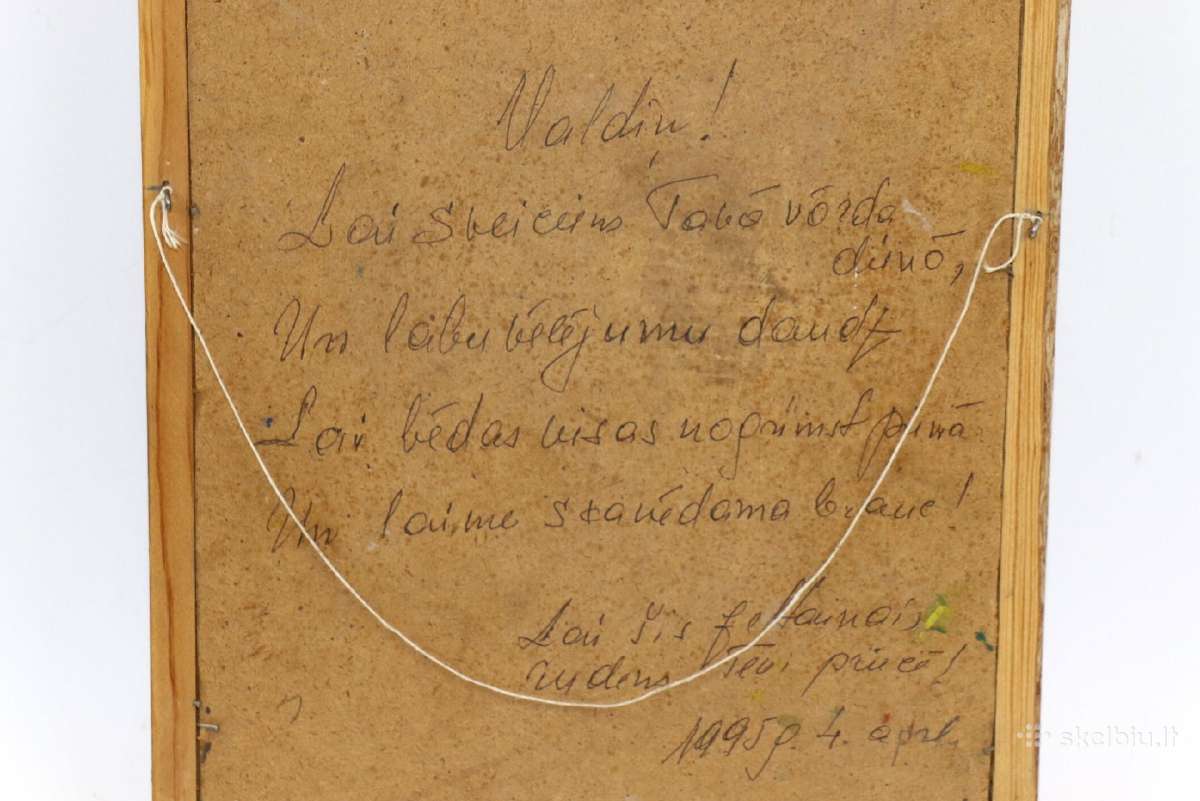 Valdiņ!
Lai sveiciens Tavā vārda
dienā,
Un labu vēlējumu daudz
Lai bēdas visas nogrimst pienā
Un laime skanēdama brauc!
Lai šis zeltainais
rudens Tevi priecē!
1995g. 4. apr.
skelbiu.lt